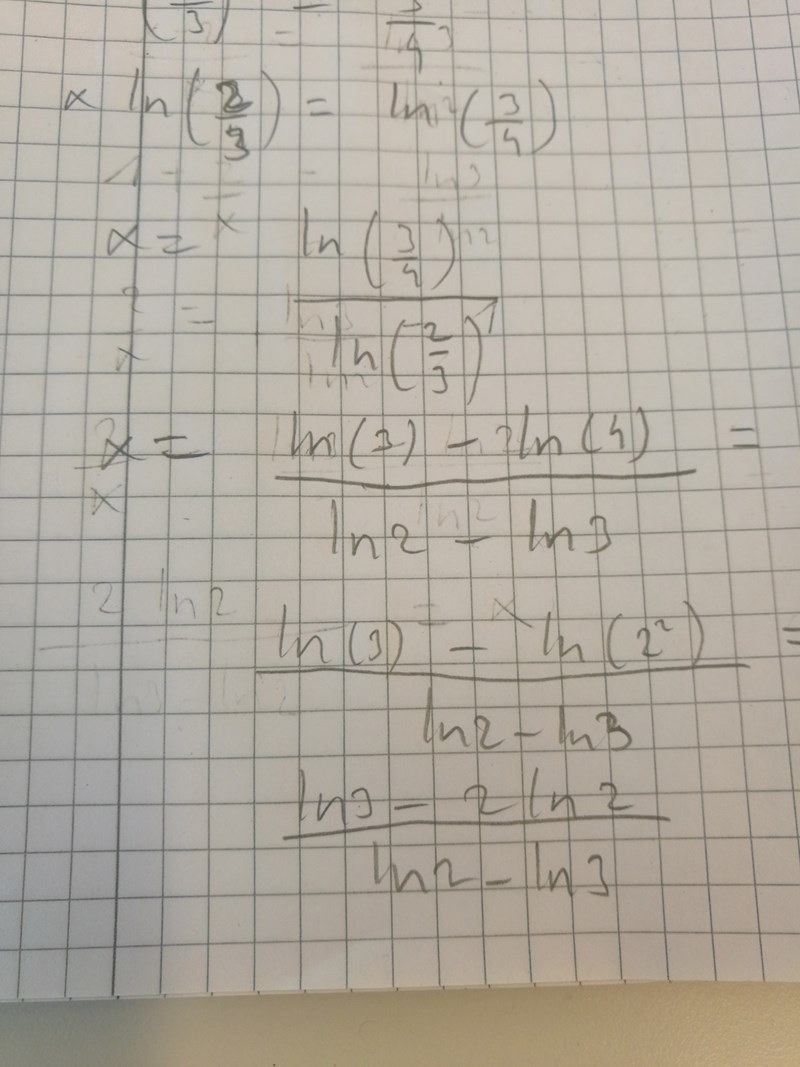 (/3) = 3/4
x ln(2/3) = ln(3/4)
x = ln(3/4) / ln(2/3)
x = (ln(3) - ln(4)) / (ln2 - ln3) =
(ln(3) - ln(2²)) / (ln2 - ln3) =
(ln3 - 2 ln2) / (ln2 - ln3)